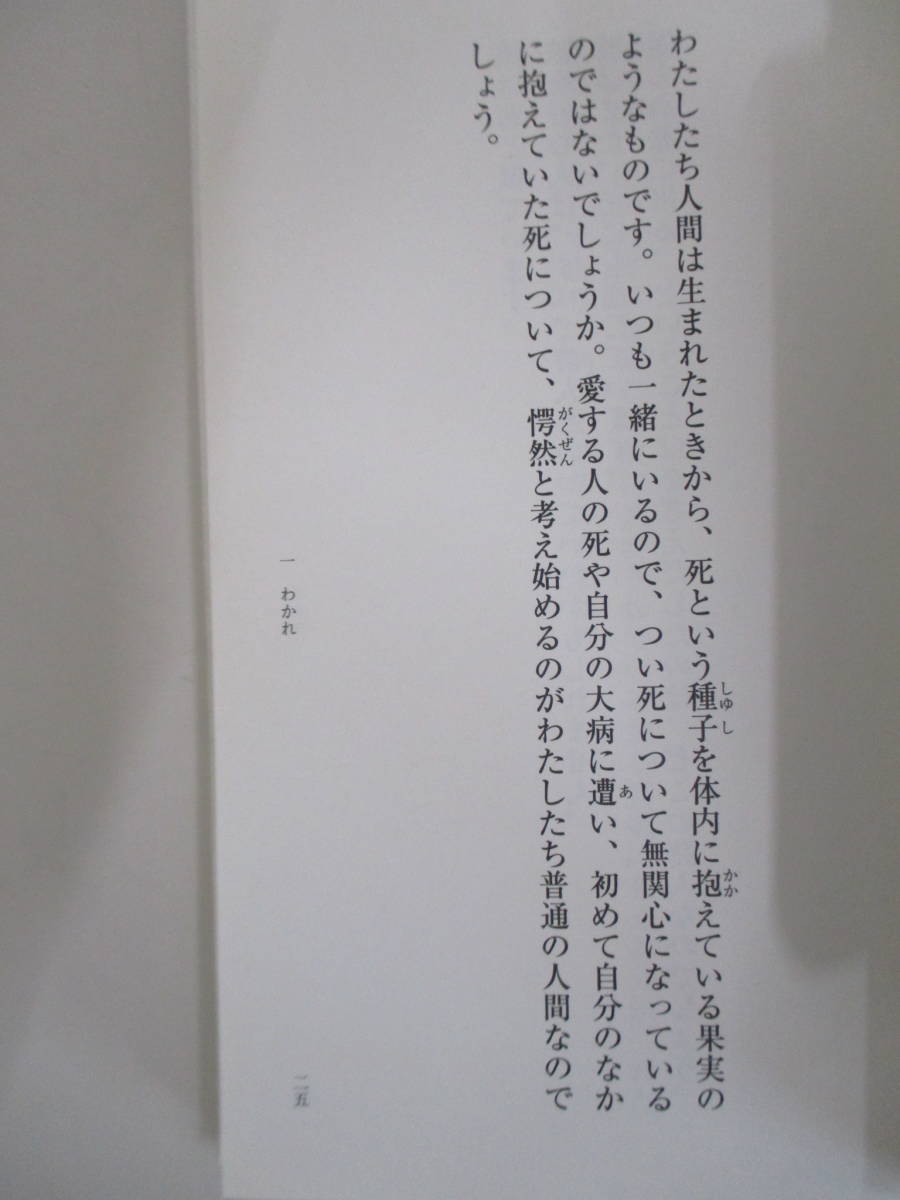 わたしたち人間は生まれたときから、死という種子を体内に抱えている果実の
しゆし
かか
ようなものです。いつも一緒にいるので、つい死について無関心になっている
のではないでしょうか。愛する人の死や自分の大病に遭い、初めて自分のなか
あ
に抱えていた死について、愕然と考え始めるのがわたしたち普通の人間なので
がくぜん
しょう。
一 わかれ
二五